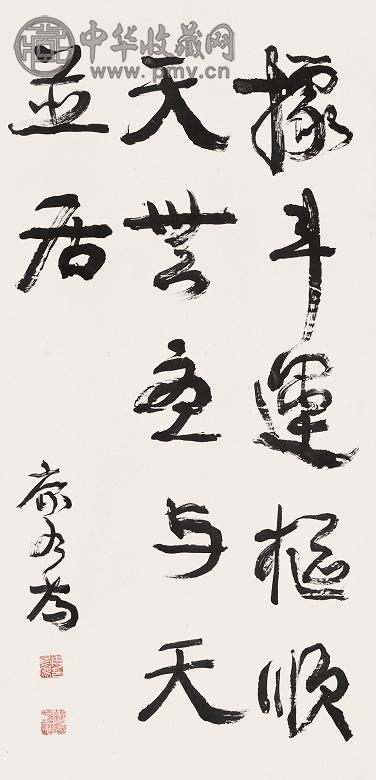 中华收藏网
www.pmv.cn
據斗運樞順
天無亟与天
並居
康有為